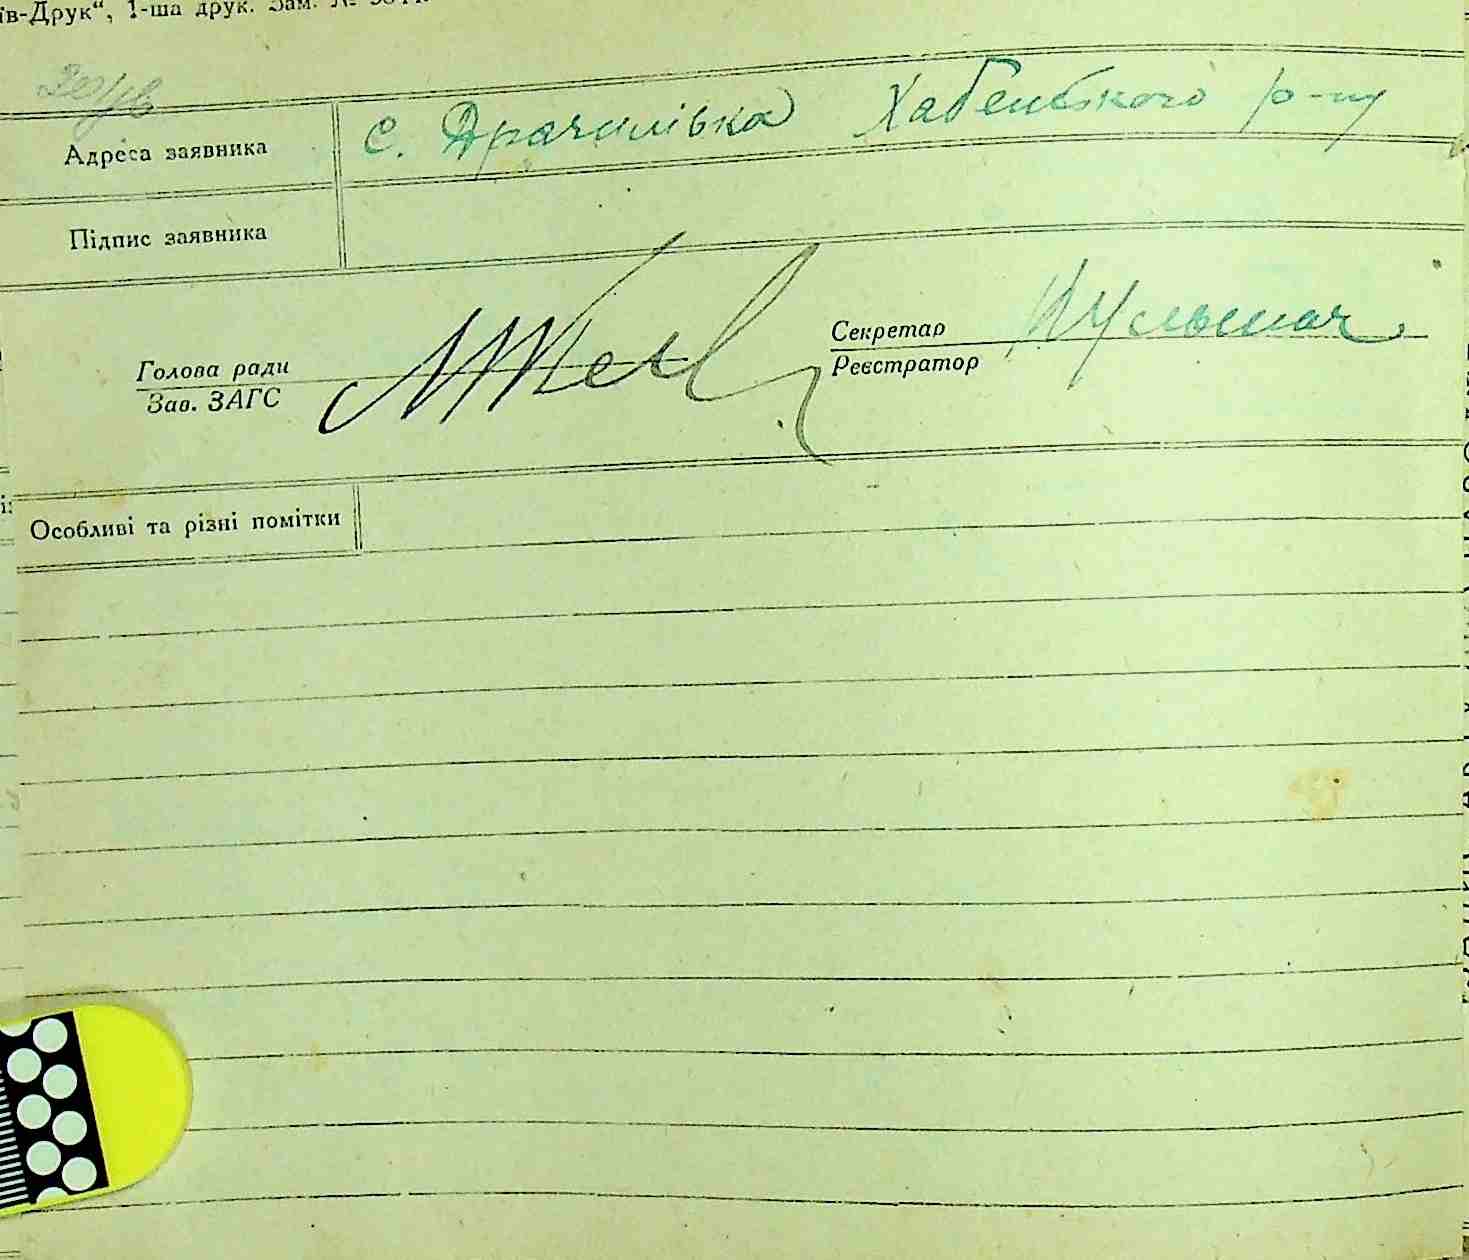 їв-Друк“, 1-ша друк. Зам. №
Адреса заявника с. Драчилівка Хабенського р-ну
Підпис заявника
Голова ради
Зав. ЗАГС
Секретар
Реєстратор
Особливі та різні помітки